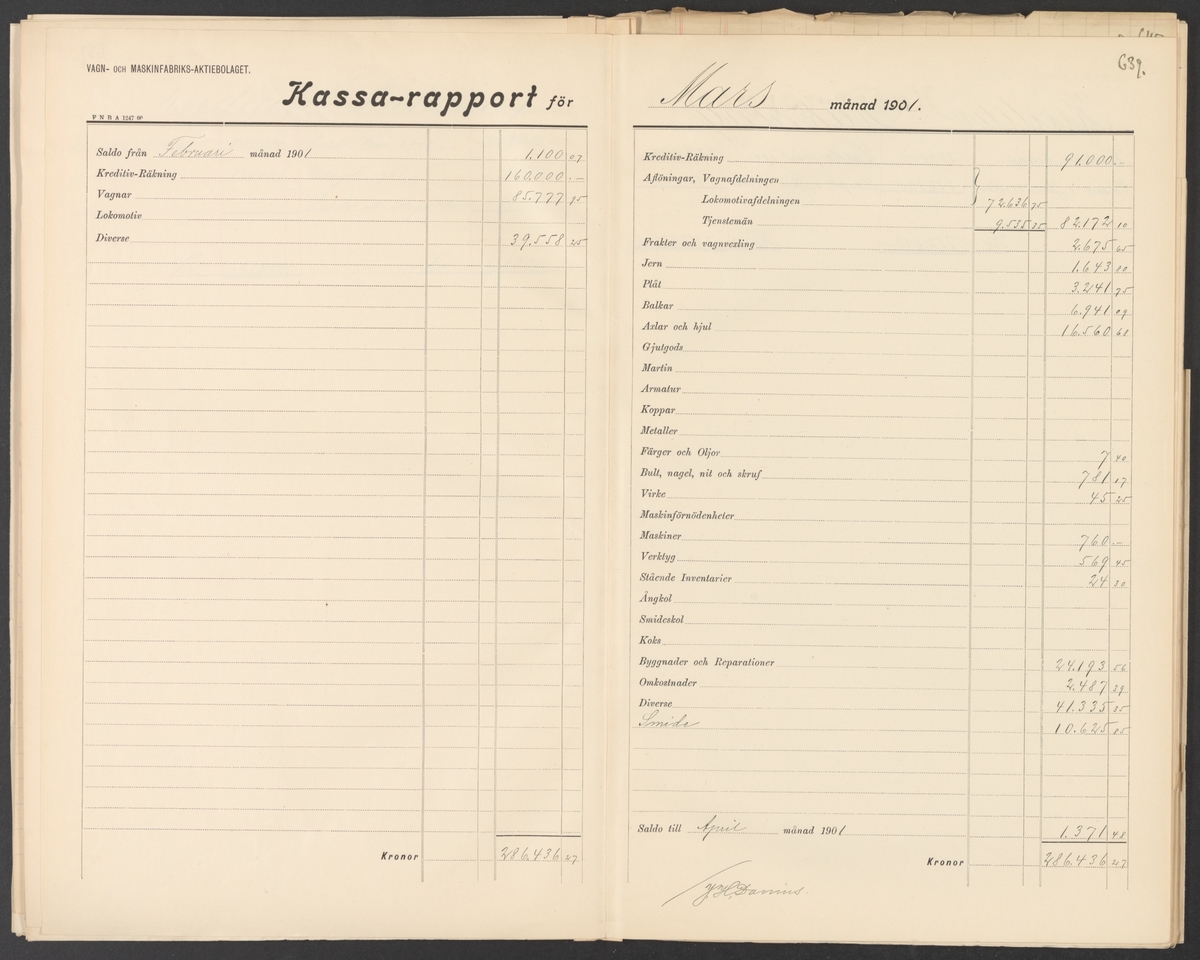 VAGN- OCH MASKINFABRIKS-AKTIEBOLAGET.
Kassa-rapport för
P N B A 1247 00
Saldo från Februari månad 1901 1.100 07
Kreditiv-Räkning 160,000.—
Vagnar 85.777 95
Lokomotiv
Diverse 39.558 25
Kronor 286.436 27
639.
Mars månad 1901.
Kreditiv-Räkning 91.000.—
Aflöningar, Vagnafdelningen
Lokomotivafdelningen 72.636 75
Tjenstemän 9.535 35 82.172 10
Frakter och vagnvexling 2.675 65
Jern 1.643 80
Plåt 3.241 75
Balkar 6.941 09
Axlar och hjul 16.560 68
Gjutgods
Martin
Armatur
Koppar
Metaller
Färger och Oljor 7 40
Bult, nagel, nit och skruf 781 17
Virke 45 25
Maskinförnödenheter
Maskiner 760.—
Verktyg 569 45
Stående Inventarier 24 30
Ångkol
Smideskol
Koks
Byggnader och Reparationer 24.193 56
Omkostnader 2.487 39
Diverse 41.335 35
Smide 10.625 85
Saldo till April månad 1901 1.371 48
Kronor 286.436 27